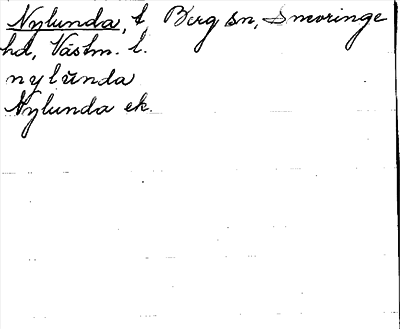 Nylunda, t, Berg sn, Snevringe
hd, Västm. l.
nylŭnda
Nylunda ek.